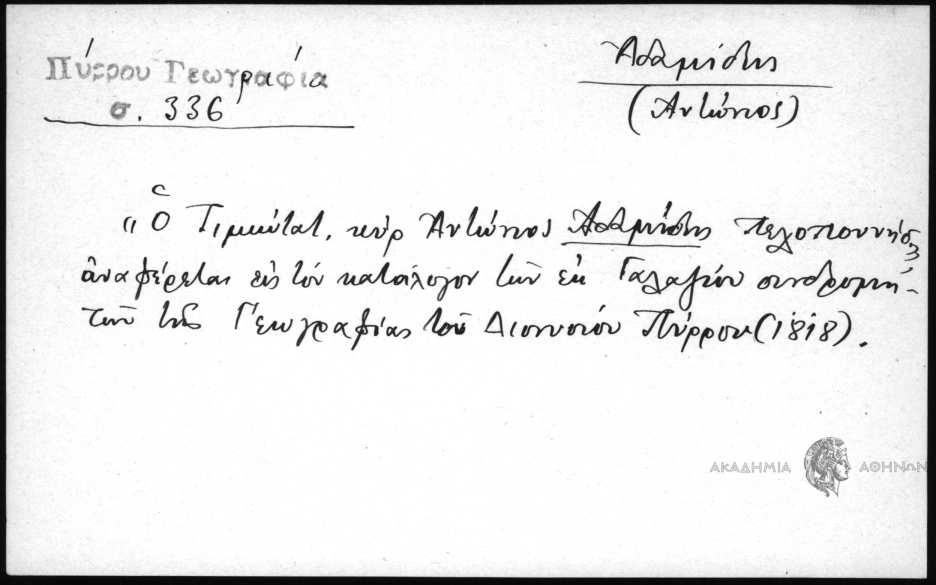 Πύρρου Γεωγραφία
σ. 336
Ἀδαμίδης
(Ἀντώνιος)
"Ὁ Τιμιώτατ. κὺρ Ἀντώνιος Ἀδαμίδης Πελοποννήσι
ἀναφέρεται εἰς τὸν κατάλογον τῶν ἐκ Γαλαζίου συνδρομη-
τῶν τῆς Γεωγραφίας τοῦ Διονυσίου Πύρρου (1818).
ΑΚΑΔΗΜΙΑ ΑΘΗΝΩΝ